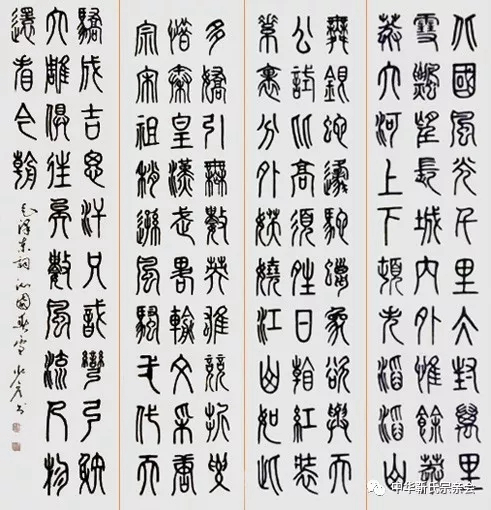 北國風光千里冰封萬里
雪飄望長城內外惟餘莽
莽大河上下頓失滔滔山
舞銀蛇原馳蠟象欲與天
公試比高須晴日看紅裝
素裹分外妖嬈江山如此
多嬌引無數英雄競折腰
惜秦皇漢武略輸文采唐
宗宋祖稍遜風騷弌代天
驕成吉思汗只識彎弓射
大雕俱往矣數風流人物
還看今朝
毛澤東詞沁園春雪 书
中华靳氏宗亲会